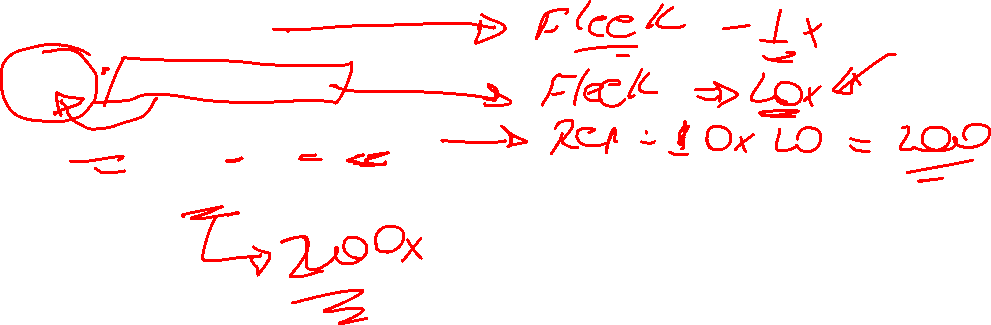 Fleek - 1x
Fleek ⇒ 20x
Rep - 10x20 = 200
200x